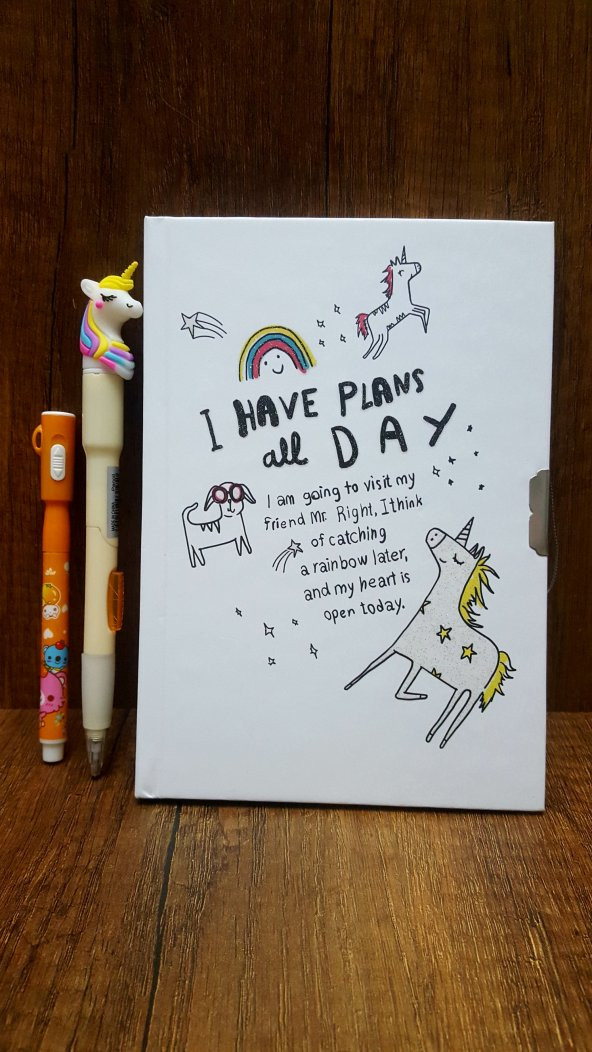 I HAVE PLANS
all DAY
I am going to visit my
friend Mr. Right, I think
of catching
a rainbow later,
and my heart is
open today.